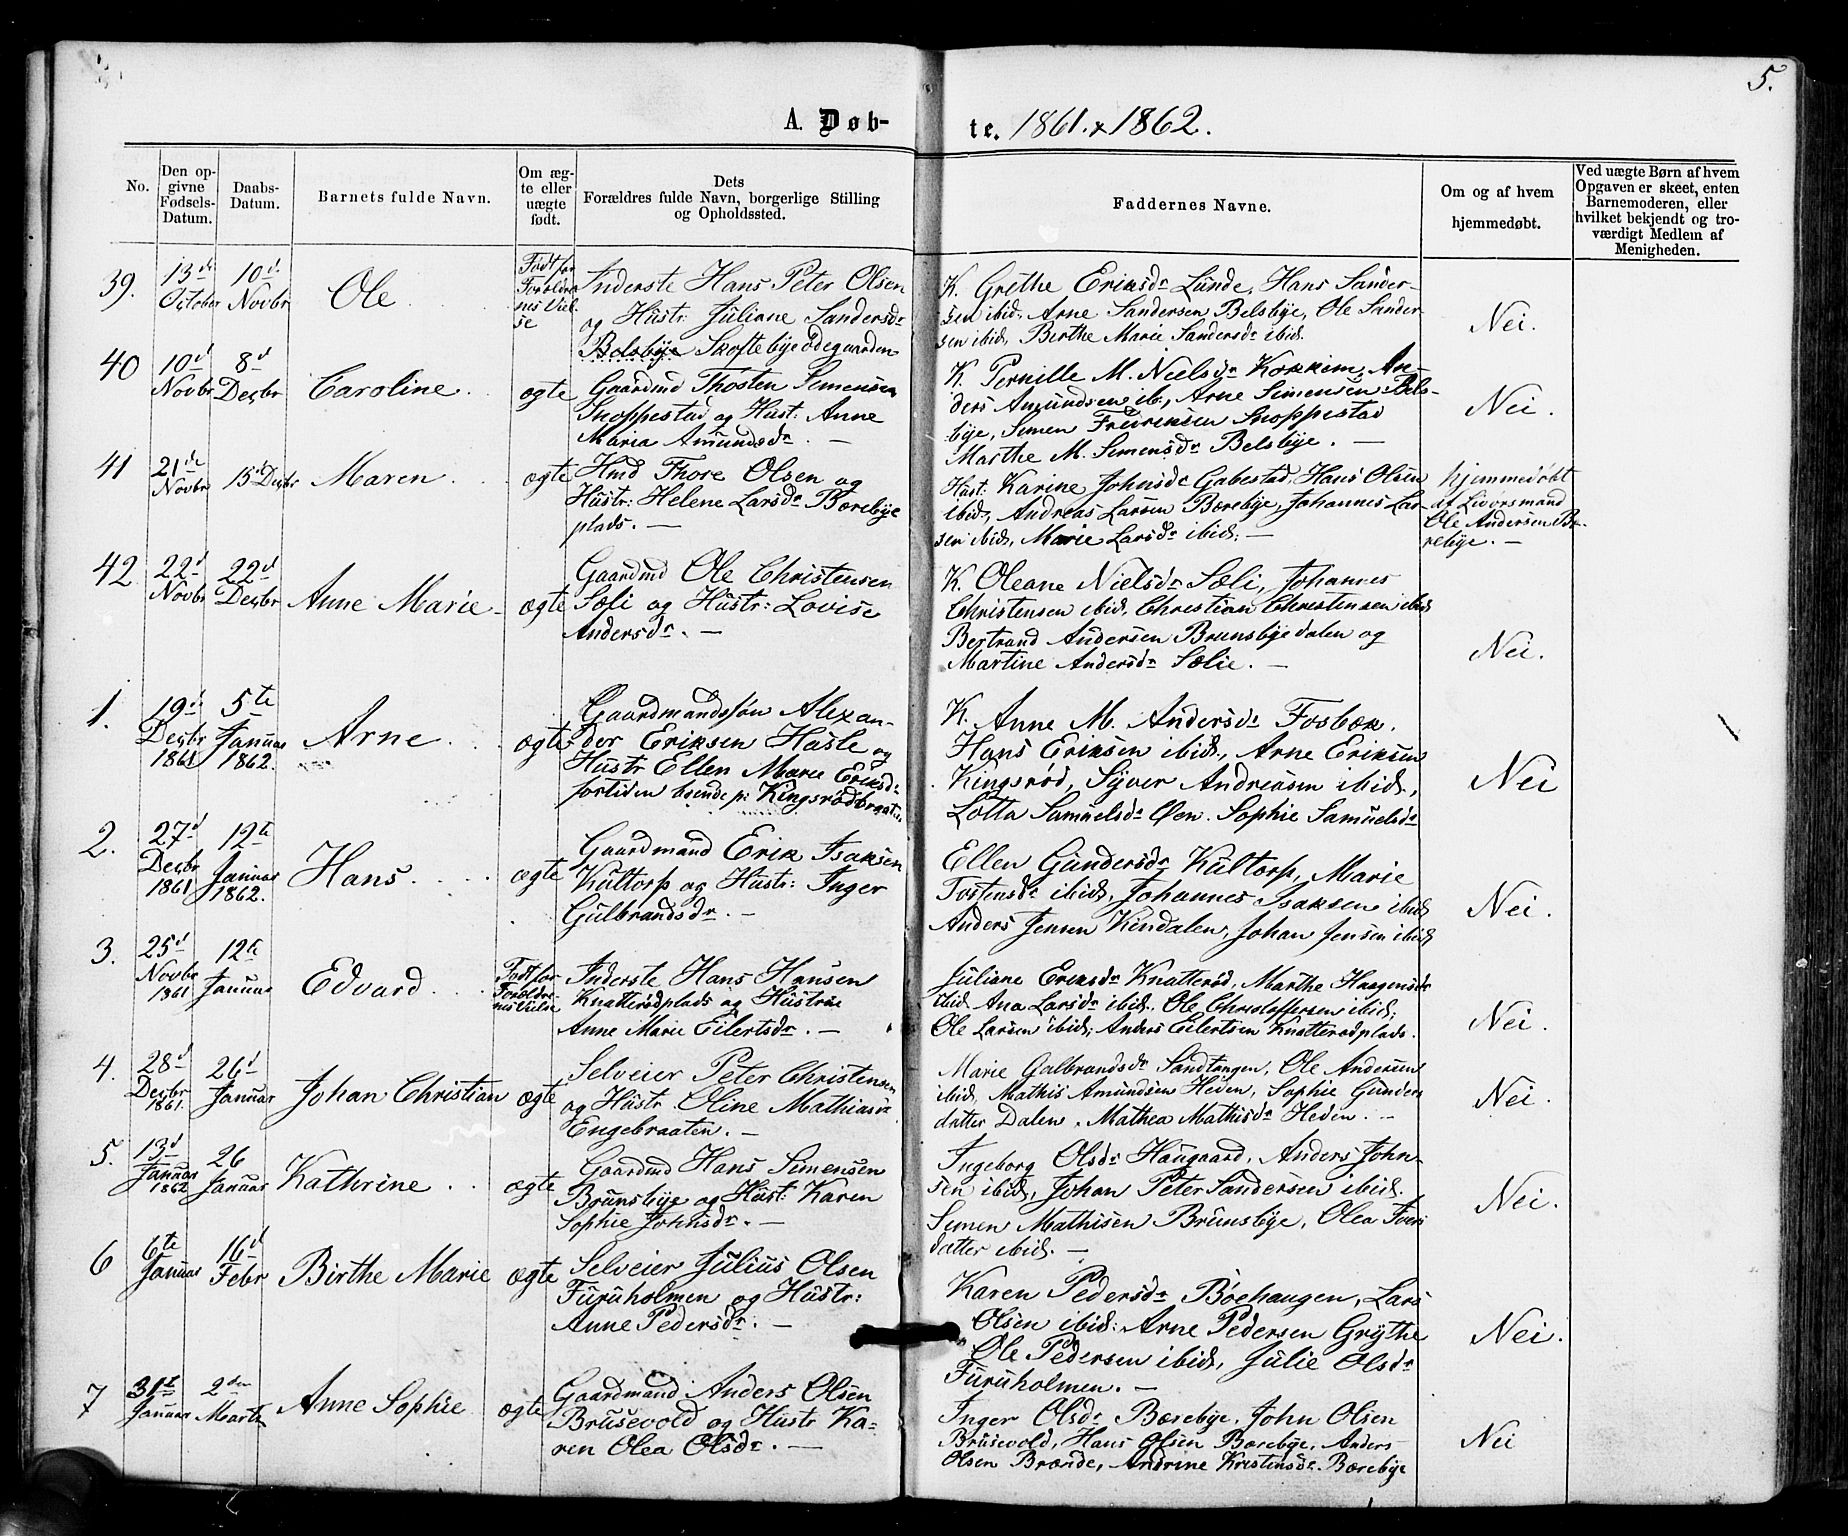 5.
A. Døb-
te. 1861. & 1862.
No.
Den op-
givne
Fødsels-
Datum.
Daabs-
Datum.
Barnets fulde Navn.
Om æg-
te eller
uægte
født.
Dets
Forældres fulde Navn, borgerlige Stilling
og Opholdssted.
Faddernes Navne.
Om og af hvem
hjemmedøbt.
Ved uægte Børn af hvem
Opgaven er skeet, enten
Barnemoderen, eller
hvilket bekjendt og tro-
værdigt Medlem af
Menigheden.
39.
13de
October
10d
Novbr
Ole
Født før
Forældre
nes Viel-
se
Inderste Hans Peter Olsen
og Hustr. Juliane Sandersdr
Belsbye Skoftebyeødegaarden
K. Grethe Eriksdr Lunde, Hans Sander-
sen ibid, Arne Sandersen Belsbye, Ole Sander-
sen ibid, Birthe Marie Sandersdr ibid.
Nei.
40
10d
Novbr
8d
Decbr
Caroline
ægte
Gaardmd Thosten Simensen
Snoppestad og Hust: Anne
Maria Amundsdr. —
K. Pernille M. Nielsdr Kokkim, An-
ders Amundsen ib., Arne Simensen Bels-
bye, Simen Fredriksen Snoppestad
Marthe M. Simensdr Belsbye. —
Nei.
41
21de
Novbr
15d Decbr
Maren
ægte
Hmd Thore Olsen og
Hustr: Helene Larsdr Bærebye
plads. —
Hust: Karine Johnsdr Gabestad, Hans Olsen
ibid, Andreas Larsen Bærebye, Johannes Lar-
sen ibid, Marie Larsdr ibid. —
hjemmedøbt
af
Ole Andersen Bæ-
rebye. —
42
22d
Novbr
22d
Decbr
Anne Marie
ægte
Gaardmd Ole Christensen
Sæli og Hustr: Lovise
Andersdr. —
K. Oleane Nielsdr Sæli, Johannes
Christensen ibid, Christian Christensen ibid
Bertrand Andersen Brunsbyedalen og
Martine Andersdr Sælie. —
Nei.
1.
19d
Decbr
1861
5te
Januar
1862.
Arne
ægte
Gaardmandssøn Alexan-
der Eriksen Hasle og
Hustr Ellen Marie Eriksdr
fortiden boende på Kingsrødbraaten
K. Anne M. Andersdr Fosbæk.
Hans Eriksen ibid, Arne Eriksen
Kingsrød, Syver Andreasen ibid,
Lotta Samuelsdr Øen. Sophie Samuelsdr
Nei
2.
27d
Decbr
1861
12te
Januar
1862.
Hans
ægte
Gaardmand Erik Isaksen
Kultorp og Hustr: Inger
Gulbrandsdr. —
Ellen Gundersdr Kultorp, Marie
Tostensdr ibid, Johannes Isaksen ibid
Anders Jensen Kindalen, Johan Jensen ibid
Nei.
3.
25d
Novbr
1861
12te
Januar
Edvard
Født før
Forældre
nes Vielse
Inderste Hans Hansen
Knatterødplads og Hustrue
Anne Marie Eilertsdr. —
Juliane Eriksdr Knatterød, Marthe Haagensdr
ibid. Ana Larsdr ibid. Ole Christoffersen ibid;
Ole Larsen ibid; Anders Eilertsen Knatterødplads.
Nei.
4.
28d
Decbr
1861.
26d
Januar
Johan Christian
ægte
Selveier Peter Christensen
og Hustr. Oline Mathiasdr
Engebraaten. —
Marie Gulbrandsdr Sandtangen, Ole Andersen
ibid, Mathis Amundsen Heden, Sophie Gunder
datter Dalen, Mathea Mathisdr Heden. —
Nei.
5.
13d
Januar
1862
26
Januar
Kathrine
ægte
Gaardmd Hans Simensen
Brunsbye og Hust: Karen
Sophie Johnsdr. —
Ingeborg Olsdr Haugaard, Anders John-
sen ibid, Johan Peter Sandersen ibid.
Simen Mathisen Brunsbye, Olea Iver
datter ibid. —
Nei.
6
6te
Januar
16d
Febr
Birthe Marie
ægte
Selveier Julius Olsen
Furuholmen og Hustr:
Anne Pedersdr. —
Karen Pedersdr Bøehaugen, Lars
Olsen ibid: Arne Pedersen Grythe
Ole Pedersen ibid, Julie Olsdr
Furuholmen. —
Nei.
7
31st
Januar
2den
Marts
Anne Sophie
ægte
Gaardmand Anders Olsen
Brusevold og Hustr Ka-
ren Olea Olsdr. —
Inger Olsdr Bærebye, John Olsen
Brusevold, Hans Olsen Bærebye, Anders
Olsen Brænde, Andrine Kristensdr. Bærebye
Nei